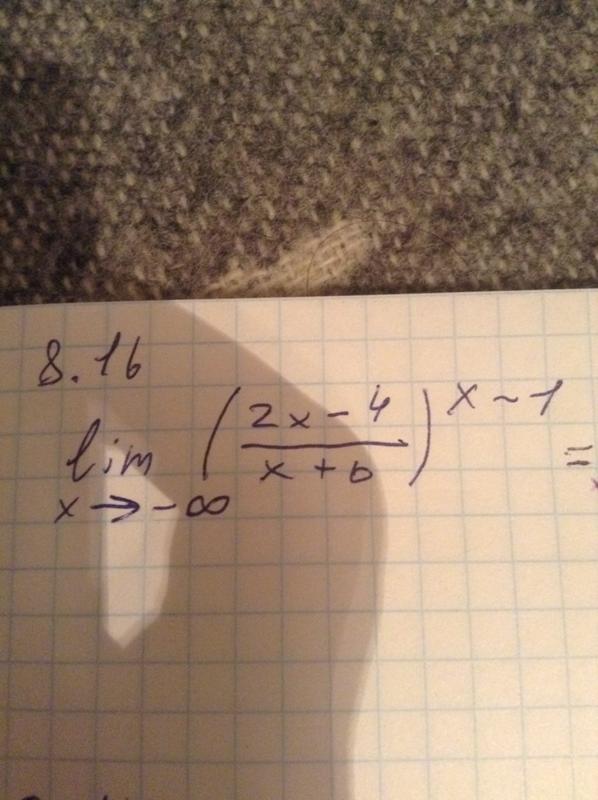 8.16
lim (2x-4 / x+6)^x-1 =
x→-∞